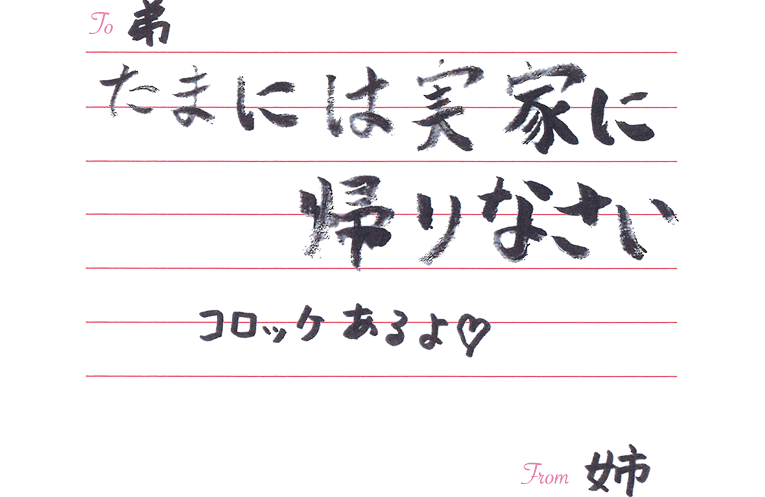 To 弟
たまには実家に
帰りなさい
コロッケあるよ♡
From 姉